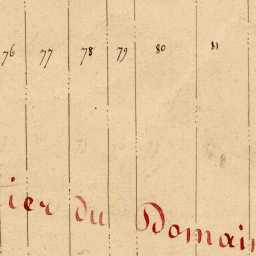 76 77 78 79 80 81
ier du Domain